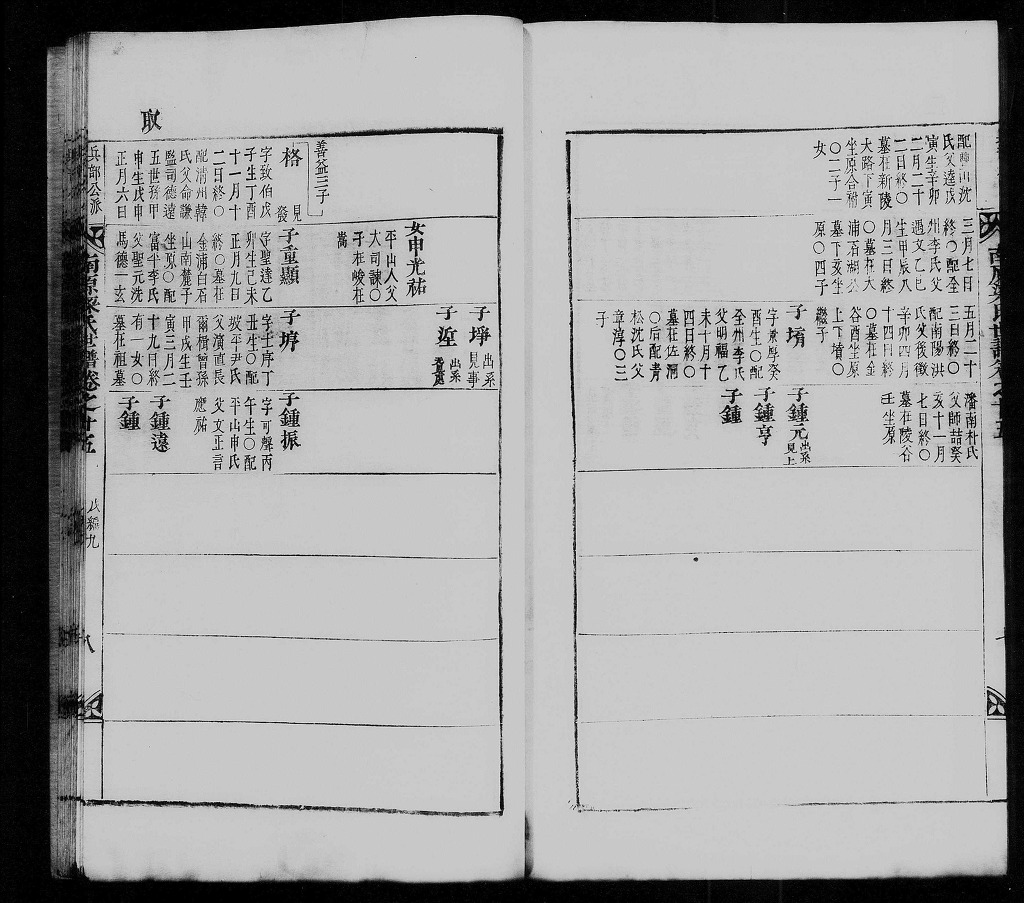 配 沈
氏父達戊
寅生辛卯
二月二十
二日終〇
墓在新陵
大路下寅
坐原合祔
〇二子一
女
三月七日
終〇配全
州李氏父
遇文乙巳
生甲辰八
月三日終
〇墓在大
浦石湖公
墓下亥坐
原〇四子
五月二十
三日終〇
配南陽洪
氏父後徵
辛卯四月
十四日終
〇墓在金
谷酉坐原
上下墳〇
繼子
子堉
字 厚癸
酉生〇配
全州李氏
父明福乙
未十月十
四日終〇
墓在佐洞
〇后配靑
松沈氏父
章淳〇三
子
潘南朴氏
父師喆癸
亥十一月
七日終〇
墓在陵谷
壬坐原
子鍾元 出系見上
子鍾亨
子鍾
取
善益三子
格 見發
字致伯戊
子生丁酉
十一月十
二日終〇
配淸州韓
氏父命謙
監司德遠
五世孫甲
申生戊申
正月六日
女申光祐
平山人父
大司諫〇
子在峻在
嵩
子重顯
字聖達乙
卯生己未
正月九日
終〇墓在
金浦白石
山南麓子
坐原〇配
富平李氏
父聖元洗
馬德一玄
子埩 出系見事
子埿 出系
子㙈
字士序丁
丑生〇配
坡平尹氏
父濱直長
爾楫曾孫
甲戌生壬
寅三月二
十九日終
有一女〇
墓在祖墓
子鍾振
字可聲丙
午生〇配
平山申氏
父文正言
應祐
子鍾遠
子鍾
兵部公派
南原梁氏世譜卷之十五
八